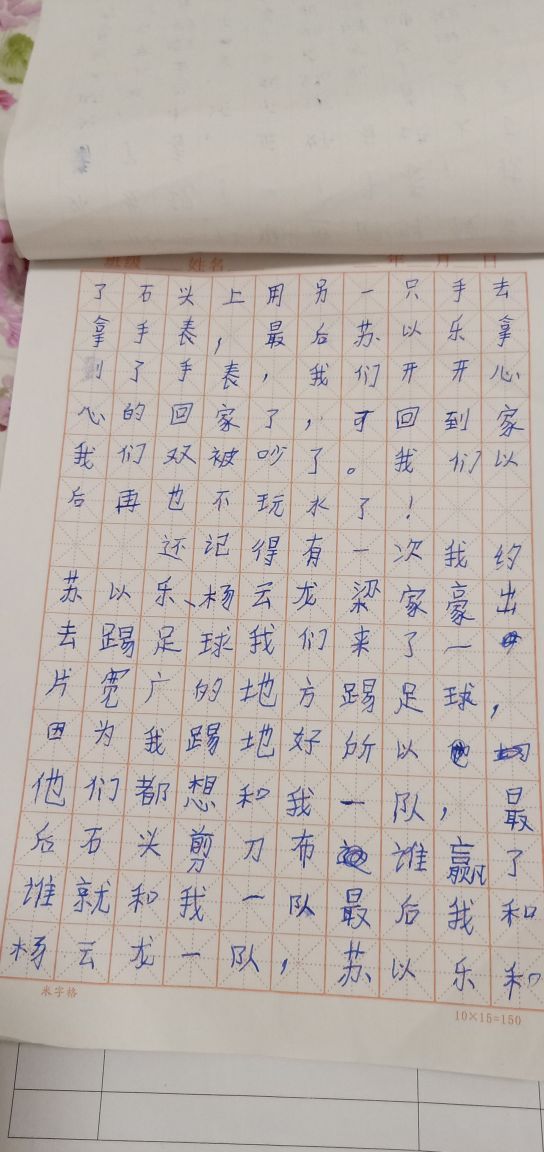 班级 姓名 年 月 日
了石头上用另一只手去
拿手表，最后苏以乐拿
到了手表，我们开开心
心的回家了，可回到家
我们双被吵了。我们以
后再也不玩水了！
还记得有一次我约
苏以乐、杨云龙梁家豪出
去踢足球我们来了一
片宽广的地方踢足球，
因为我踢地好所以
他们都想和我一队，最
后石头剪刀布谁赢了
谁就和我一队最后我和
杨云龙一队，苏以乐和
米字格
10×15=150